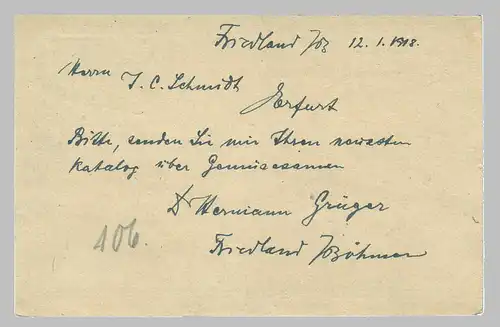 Friedland /Bö 12. 1. 1918.
Herrn J. C. Schmidt
Erfurt
Bitte, senden Sie mir Ihren neuesten
Katalog über Gemüsesamen
Dr Hermann Grüger
Friedland /Böhmen
106.